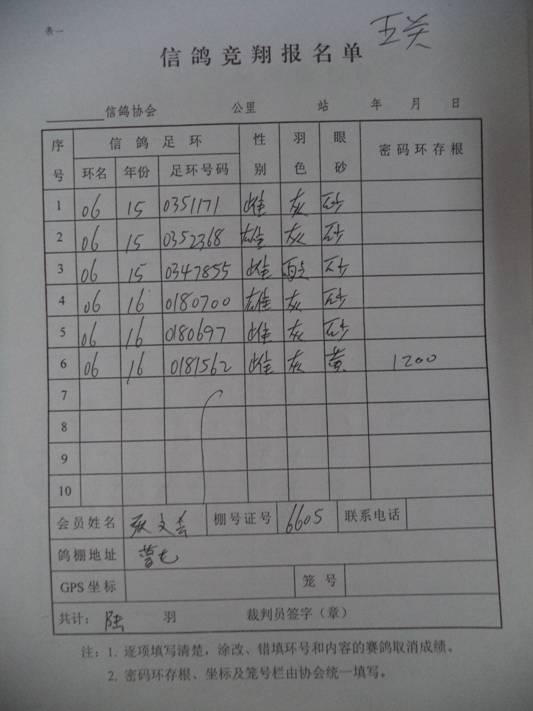 表一
五关
信鸽竞翔报名单
信鸽协会 公里 站 年 月 日
序号 信鸽足环 性别 羽色 眼砂 密码环存根
环名 年份 足环号码
1 06 15 0351171 雌 灰 砂
2 06 15 0352368 雄 灰 砂
3 06 15 0347855 雌 砂
4 06 16 0180700 雄 灰 砂
5 06 16 0180697 雌 灰 砂
6 06 16 0181562 雌 灰 黄 1200
7
8
9
10
会员姓名 张文 棚号证号 6605 联系电话
鸽棚地址
GPS坐标 笼号
共计：陆 羽 裁判员签字（章）
注：1. 逐项填写清楚，涂改、错填环号和内容的赛鸽取消成绩。
2. 密码环存根、坐标及笼号栏由协会统一填写。